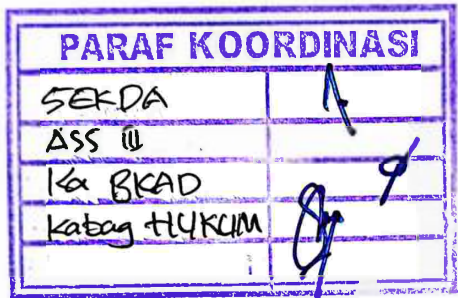 PARAF KOORDINASI
SEKDA
ASS III
Ka BKAD
Kabag HUKUM